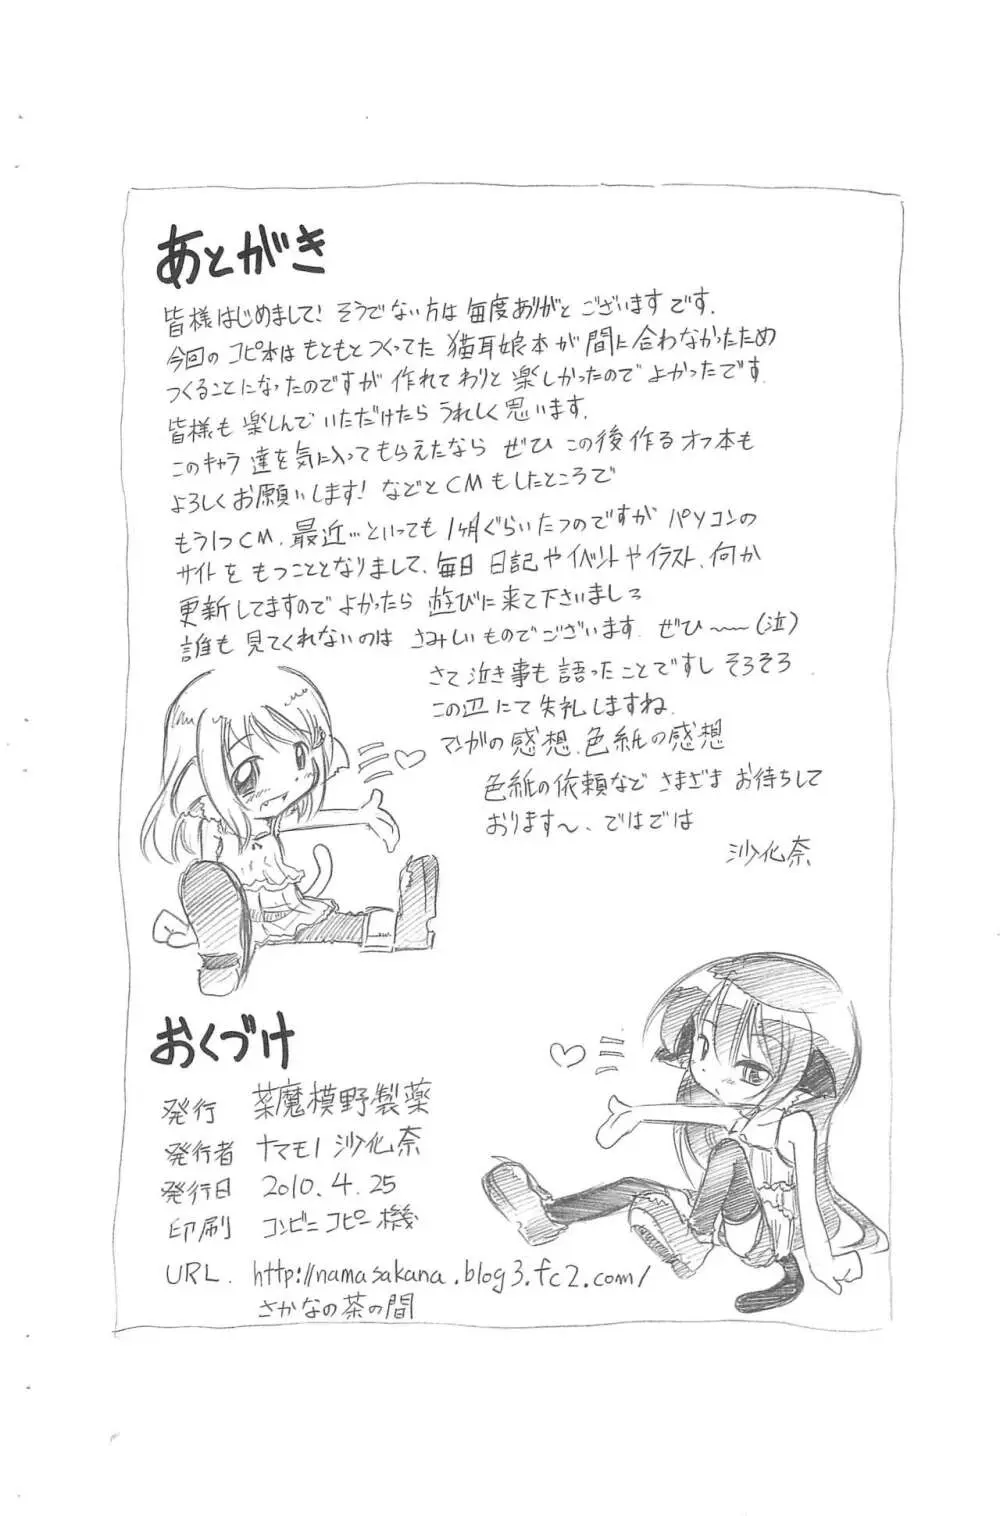 あとがき
皆様はじめまして！そうでない方は毎度ありがとございますです。
今回のコピ本はもともとつくってた猫耳娘本が間に合わなかったため
つくることになったのですが作れてわりと楽しかったのでよかったです。
皆様も楽しんでいただけたらうれしく思います。
このキャラ達を気に入ってもらえたならぜひこの後作るオフ本も
よろしくお願いします！などとCMもしたところで
もう1つCM、最近…といっても1ヶ月ぐらいたつのですがパソコンの
サイトをもつこととなりまして、毎日日記やイベントやイラスト、何か
更新してますのでよかったら遊びに来て下さいましろ
誰も見てくれないのはさみしいものでございます。ぜひ〜〜(泣)
さて泣き事も語ったことですしそろそろ
この辺にて失礼しますね。
マンガの感想、色紙の感想
色紙の依頼などさまざまお待ちして
おります〜、ではでは
沙化奈
おくづけ
発行 菜魔模野製薬
発行者 ナマモノ沙化奈
発行日 2010.4.25
印刷 コンビニコピー機
URL. http://namasakana.blog3.fc2.com/
さかなの茶の間